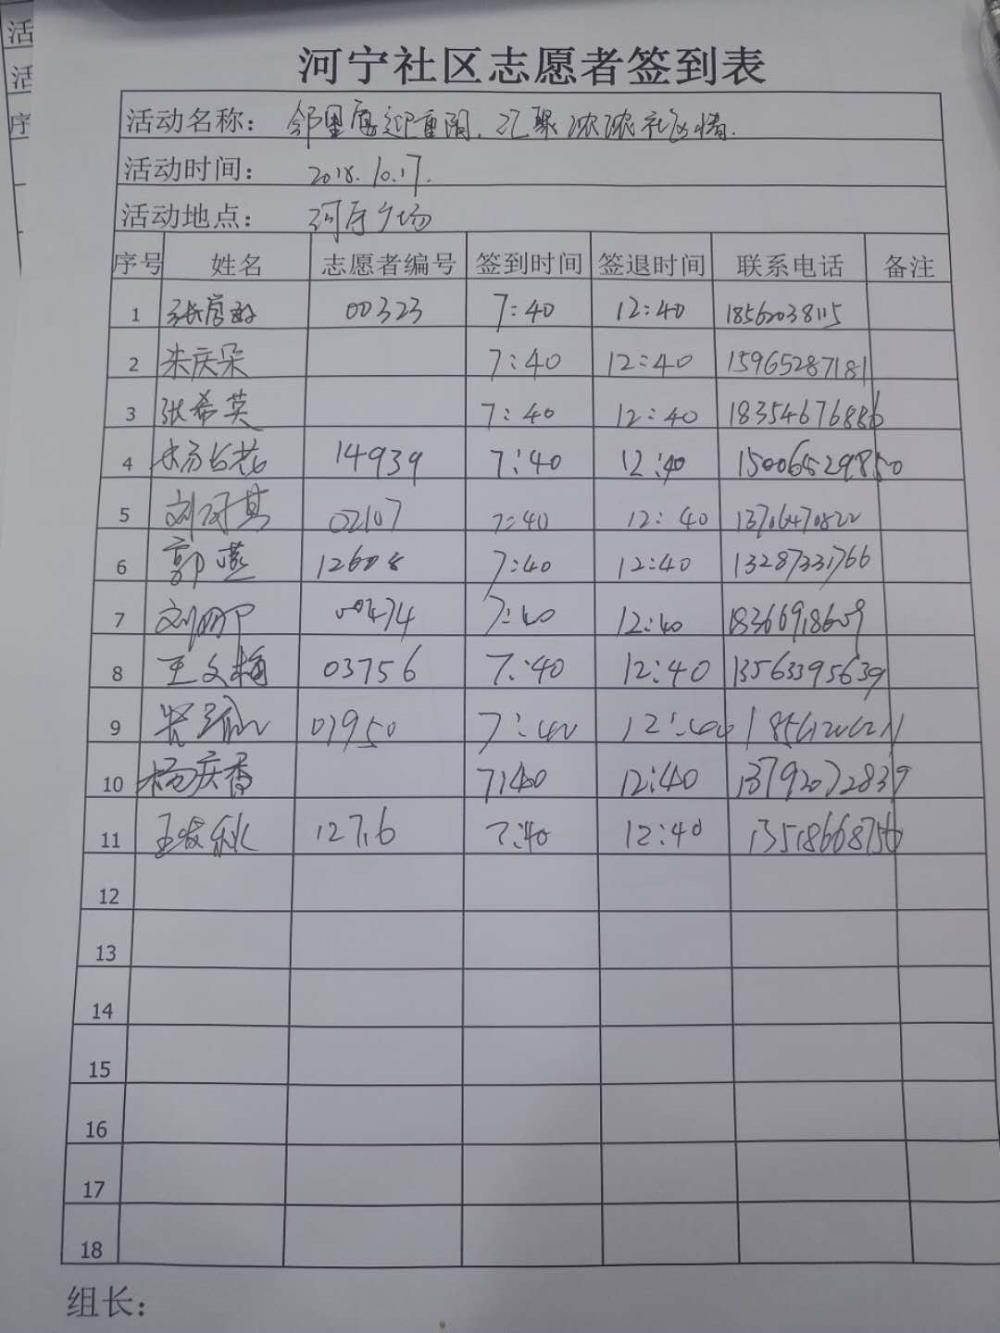 活
活
序
河宁社区志愿者签到表
活动名称： 邻里 迎重阳，汇聚浓浓社区情.
活动时间： 2018.10.17.
活动地点： 河宁广场
序号 姓名 志愿者编号 签到时间 签退时间 联系电话 备注
1 00323 7:40 12:40 18562038115
2 朱庆朵 7:40 12:40 15965287181
3 张希英 7:40 12:40 18354676886
4 14939 7:40 12:40 15006529850
5 02107 7:40 12:40 13706470822
6 郭燕 12608 7:40 12:40 13287331766
7 00474 7:40 12:40 18366918609
8 王文梅 03756 7:40 12:40 13563395639
9 01950 7:40 12:40
10 杨庆香 7:40 12:40 13792072839
11 12716 7:40 12:40 13518668756
12
13
14
15
16
17
18
组长：